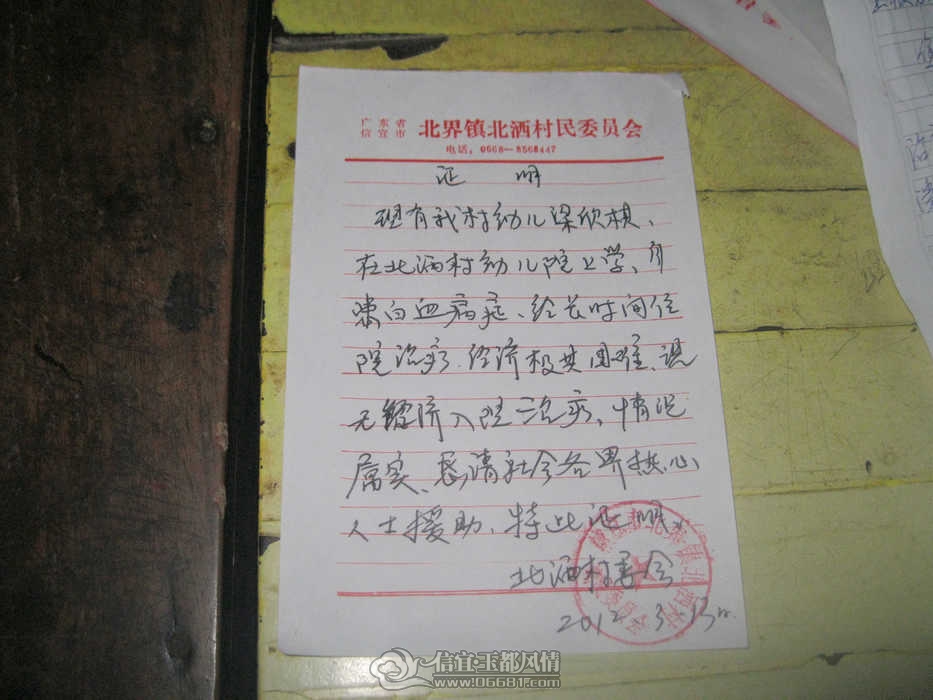 广东省
信宜市
北界镇北洒村民委员会
电话:0668—8568447
证 明
现有我村幼儿梁欣棋、
在北洒村幼儿院上学、身
患白血病症、经长时间住
院治疗、经济极其困难、现
无经济入院治疗、情况
属实、恳请社会各界热心
人士援助、特此证明。
北洒村委会
2012.3.13
信宜·玉都风情
www.06681.com